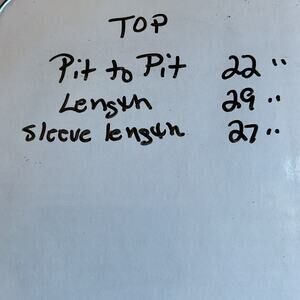 TOP
Pit to Pit 22"
Length 29"
Sleeve length 27"